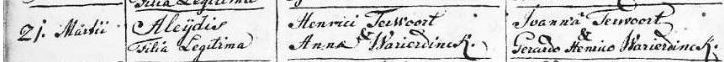 Filia Legitima
21. Martii
Aleÿdis
Filia Legitima
Henrici Terwoort
&
Anna Warierdinck.
Joanna Terwoort
&
Gerardo Henrico Warierdinck.